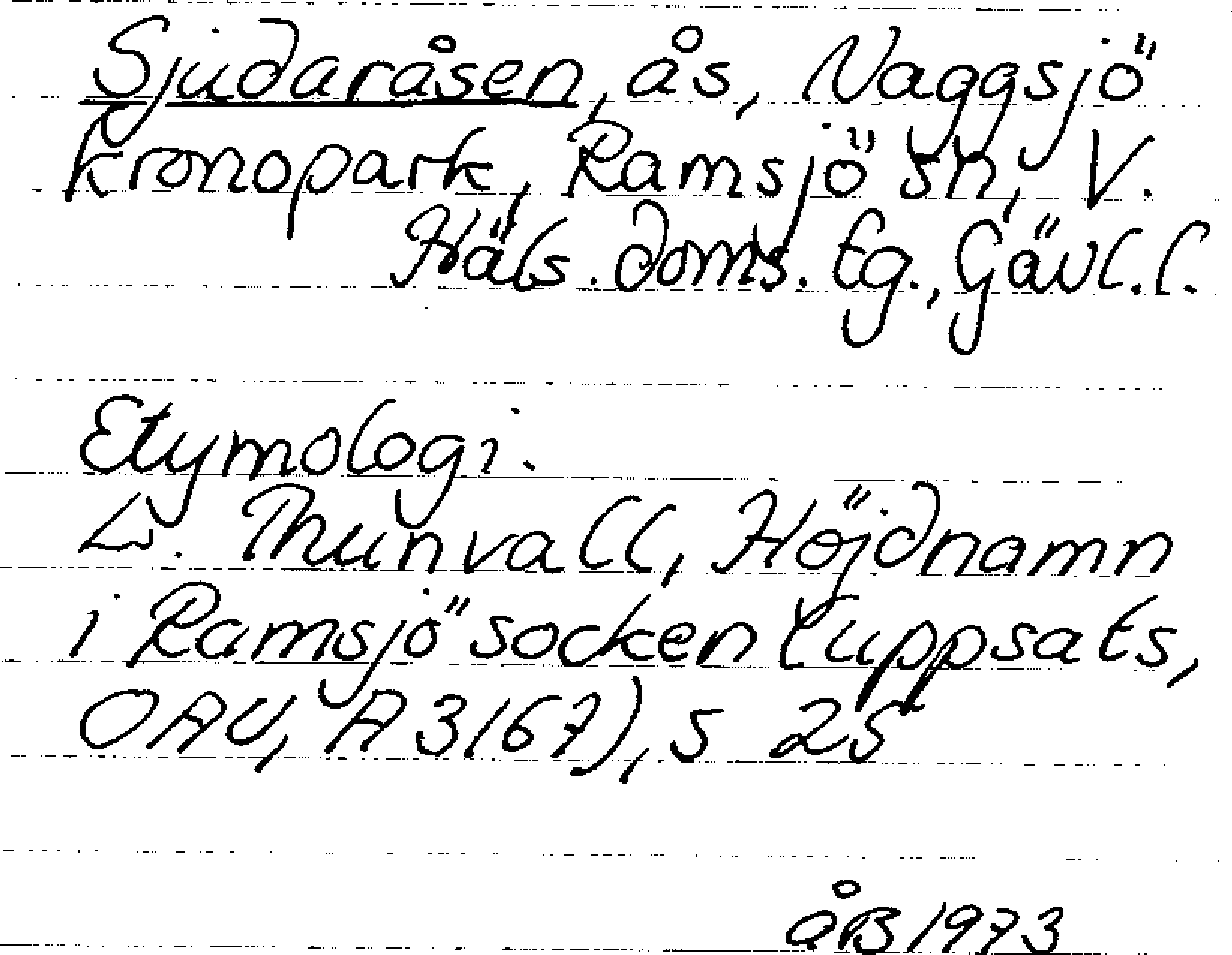 Sjudaråsen, ås, Naggsjö
kronopark, Ramsjö sn, V.
Häls. doms. tg., Gävl. l.
Etymologi.
L. Thunvall, Höjdnamn
i Ramsjö socken (uppsats,
OAU, A 3167), s 25
ÅB 1973